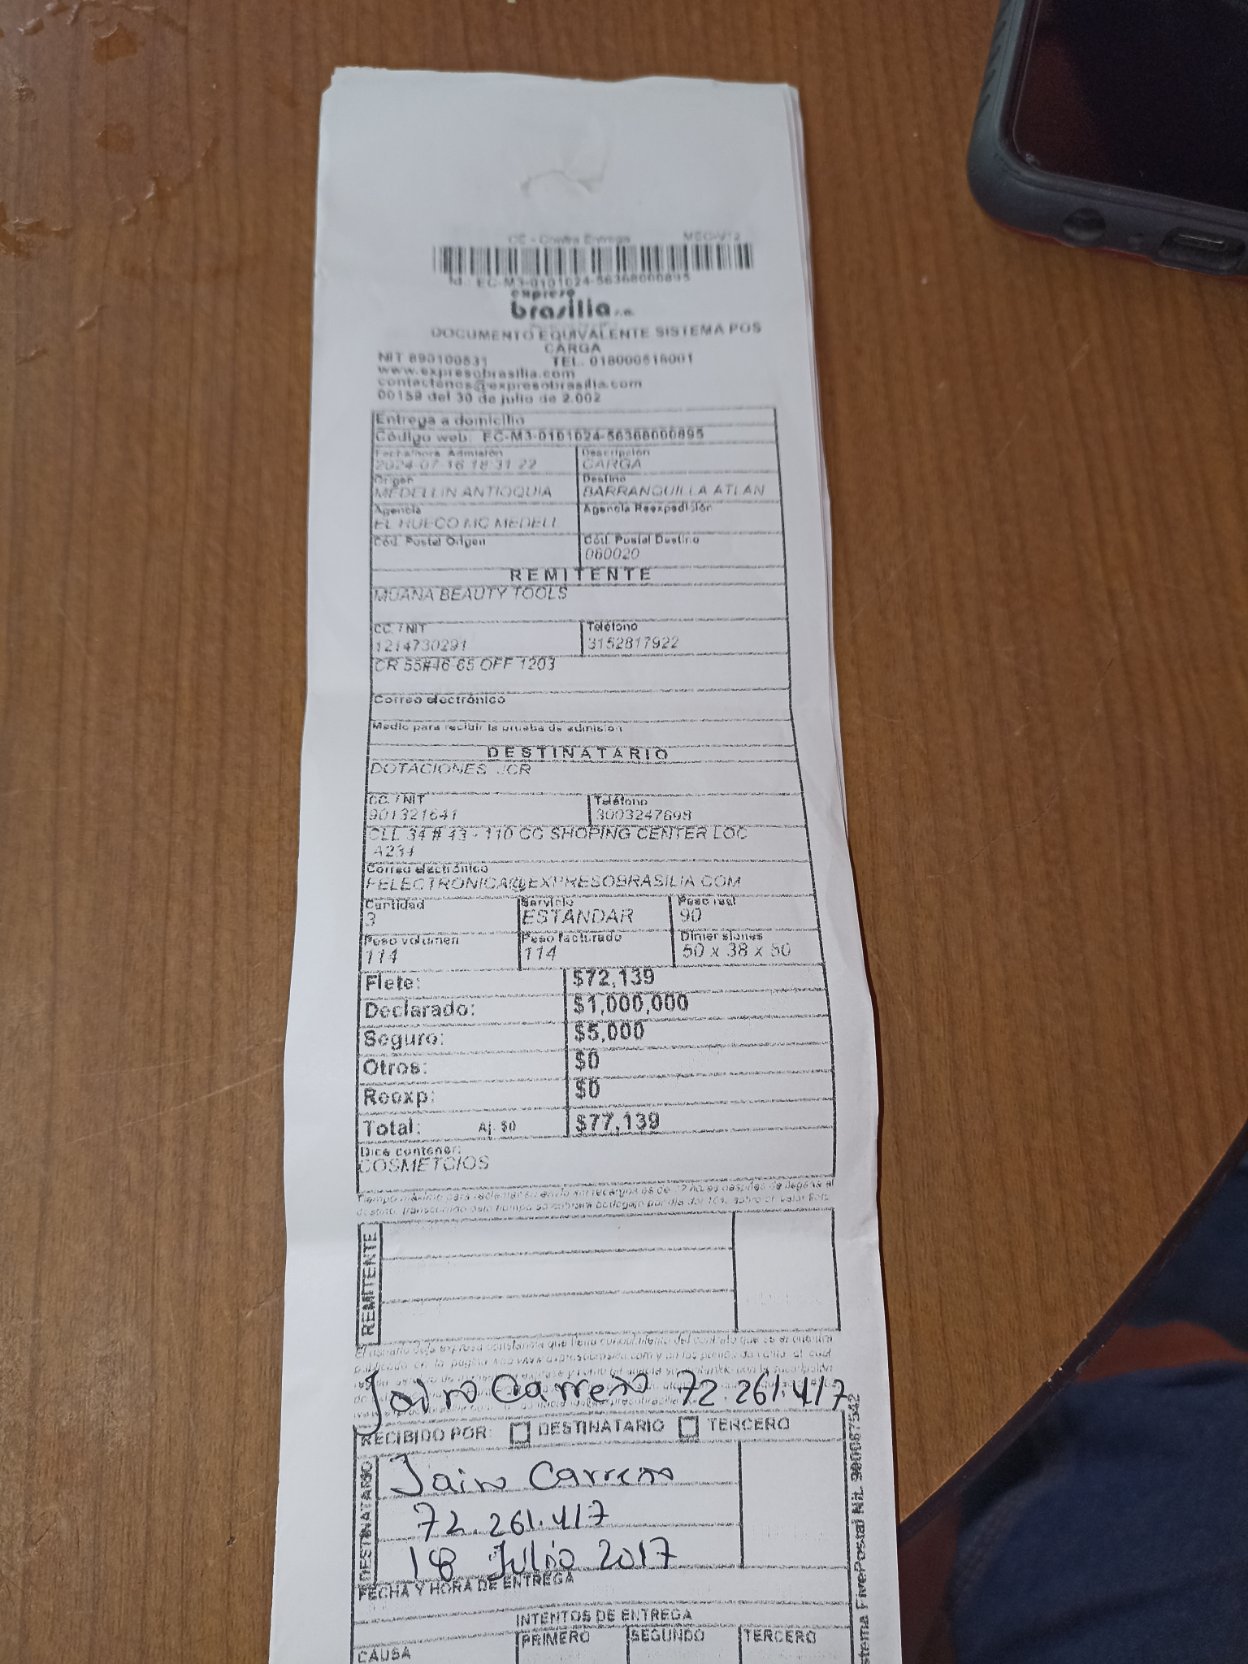 CE - Contra Entrega
Id.: EC-M3-0101024-56368000895
expreso
brasilia s.a.
DOCUMENTO EQUIVALENTE SISTEMA POS
CARGA
NIT 890100531 TEL. 018000518001
www.expresobrasilia.com
contactenos@expresobrasilia.com
00159 del 30 de julio de 2.002
Entrega a domicilio
Código web: EC-M3-0101024-56368000895
Fecha/hora Admisión Descripción
2024-07-16 18:31:22 CARGA
Origen Destino
MEDELLIN ANTIOQUIA BARRANQUILLA ATLAN
Agencia Agencia Reexpedición
EL HUECO MC MEDELL
Cód. Postal Origen Cód. Postal Destino
080020
REMITENTE
MOANA BEAUTY TOOLS
CC. / NIT Teléfono
1214730291 3152817922
CR 55#46 65 OFF 1203
Correo electrónico
Medio para recibir la prueba de admisión
DESTINATARIO
DOTACIONES JCR
CC. / NIT Teléfono
901321641 3003247698
CLL 34 # 43 - 110 CC SHOPING CENTER LOC
A234
Correo electrónico
FELECTRONICA@EXPRESOBRASILIA.COM
Cantidad Servicio Peso real
3 ESTANDAR 90
Peso volumen Peso facturado Dimensiones
114 114 50 x 38 x 50
Flete: $72,139
Declarado: $1,000,000
Seguro: $5,000
Otros: $0
Reexp: $0
Total: Aj. $0 $77,139
Dice contener:
COSMETCIOS
REMITENTE
Jairo Carreño 72.261.417
RECIBIDO POR: DESTINATARIO TERCERO
DESTINATARIO
Jairo Carreño
72.261.417
18 Julio 2017
FECHA Y HORA DE ENTREGA
INTENTOS DE ENTREGA
CAUSA PRIMERO SEGUNDO TERCERO
stema FivePostal Nit. 900087542